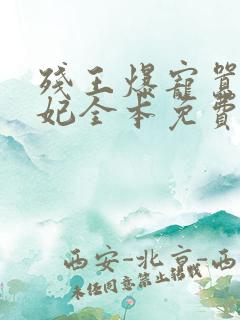 残王爆宠嚣
妃全本免费
西安-北京-西
未经同意禁止转载